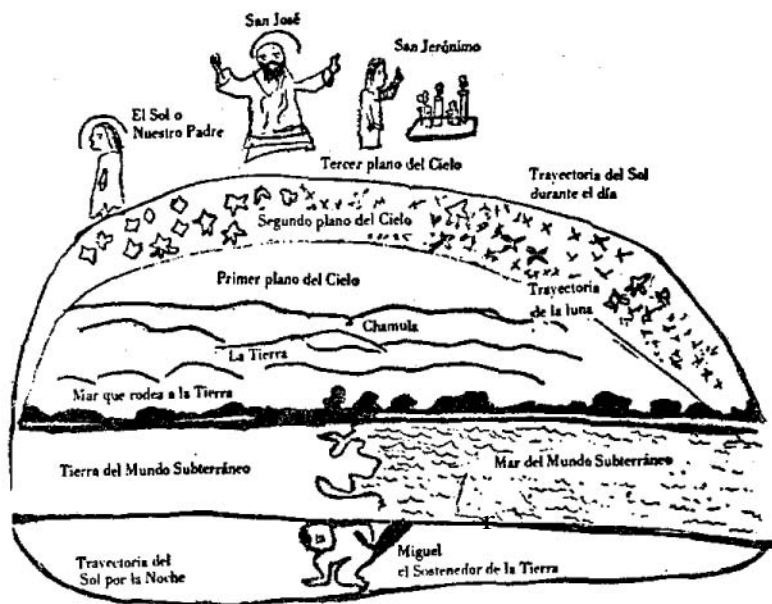 San José
San Jerónimo
El Sol o
Nuestro Padre
Tercer plano del Cielo
Trayectoria del Sol
durante el día
Segundo plano del Cielo
Primer plano del Cielo
Trayectoria
de la luna
Chamula
La Tierra
Mar que rodea a la Tierra
Tierra del Mundo Subterráneo
Mar del Mundo Subterráneo
Trayectoria del
Sol por la Noche
Miguel
el Sostenedor de la Tierra